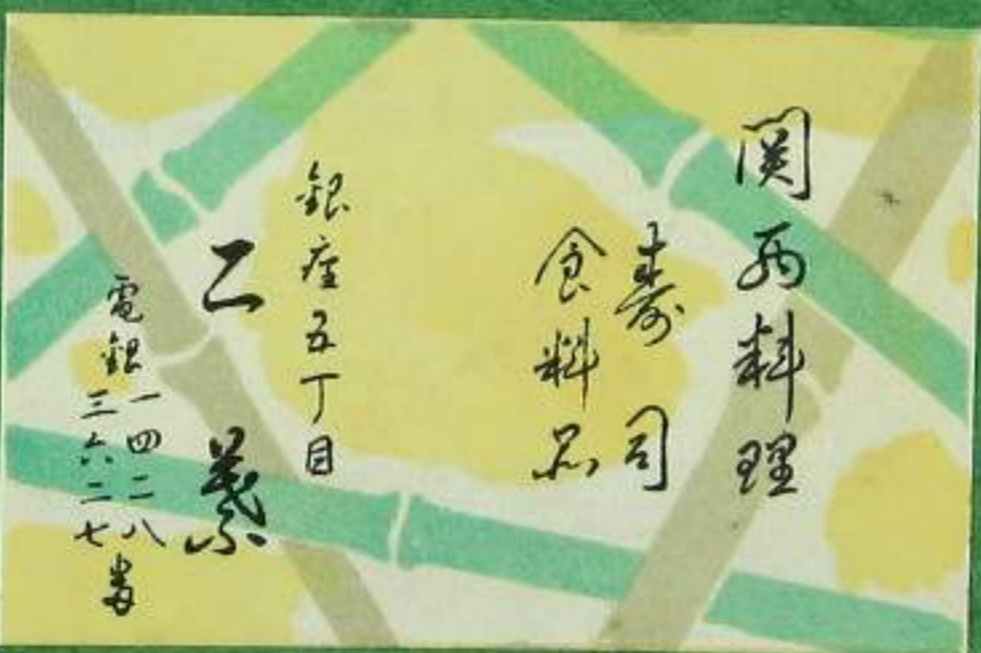 関西料理
寿司
食料品
銀座五丁目
二葉
電銀一四二八
三六二七番